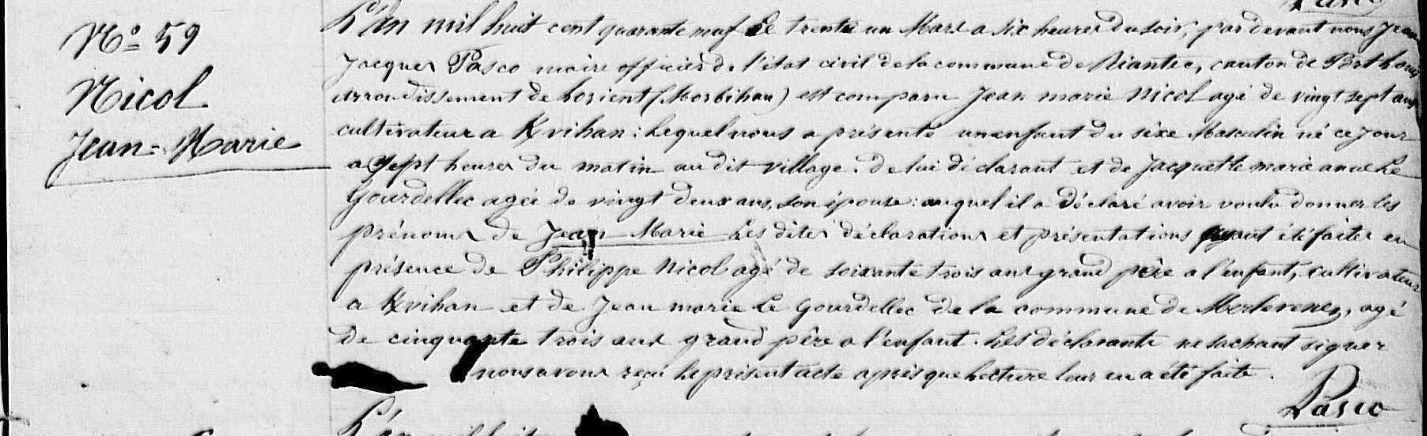 Pasco
N° 59
Nicol
Jean-Marie
L'an mil huit cent quarante neuf le trente un Mars a six heures du soir, par devant nous Jean
Jacques Pasco maire officier de l'état civil de la commune de Riantec, canton de Port Louis
arrondissement de Lorient (Morbihan) est comparu Jean marie Nicol agé de vingt sept ans
cultivateur a Kvihan : Lequel nous a présenté un enfant du sexe Masculin né ce jour
a sept heures du matin au dit village. de lui déclarant et de Jacquette marie anne Le
Gourdellec agée de vingt deux ans, son épouse : auquel il a déclaré avoir voulu donner les
prénoms de Jean Marie Les dites déclarations et présentations ayant été faites en
présence de Philippe Nicol agé de soixante trois ans grand père a l'enfant, cultivateur
a Kvihan et de Jean marie Le Gourdellec de la commune de Merlevenez, agé
de cinquante trois ans grand père a l'enfant. Les déclarants ne sachant signer
nous avons reçu le présent acte après que lecture leur en a été faite.
Pasco
L'an mil huit